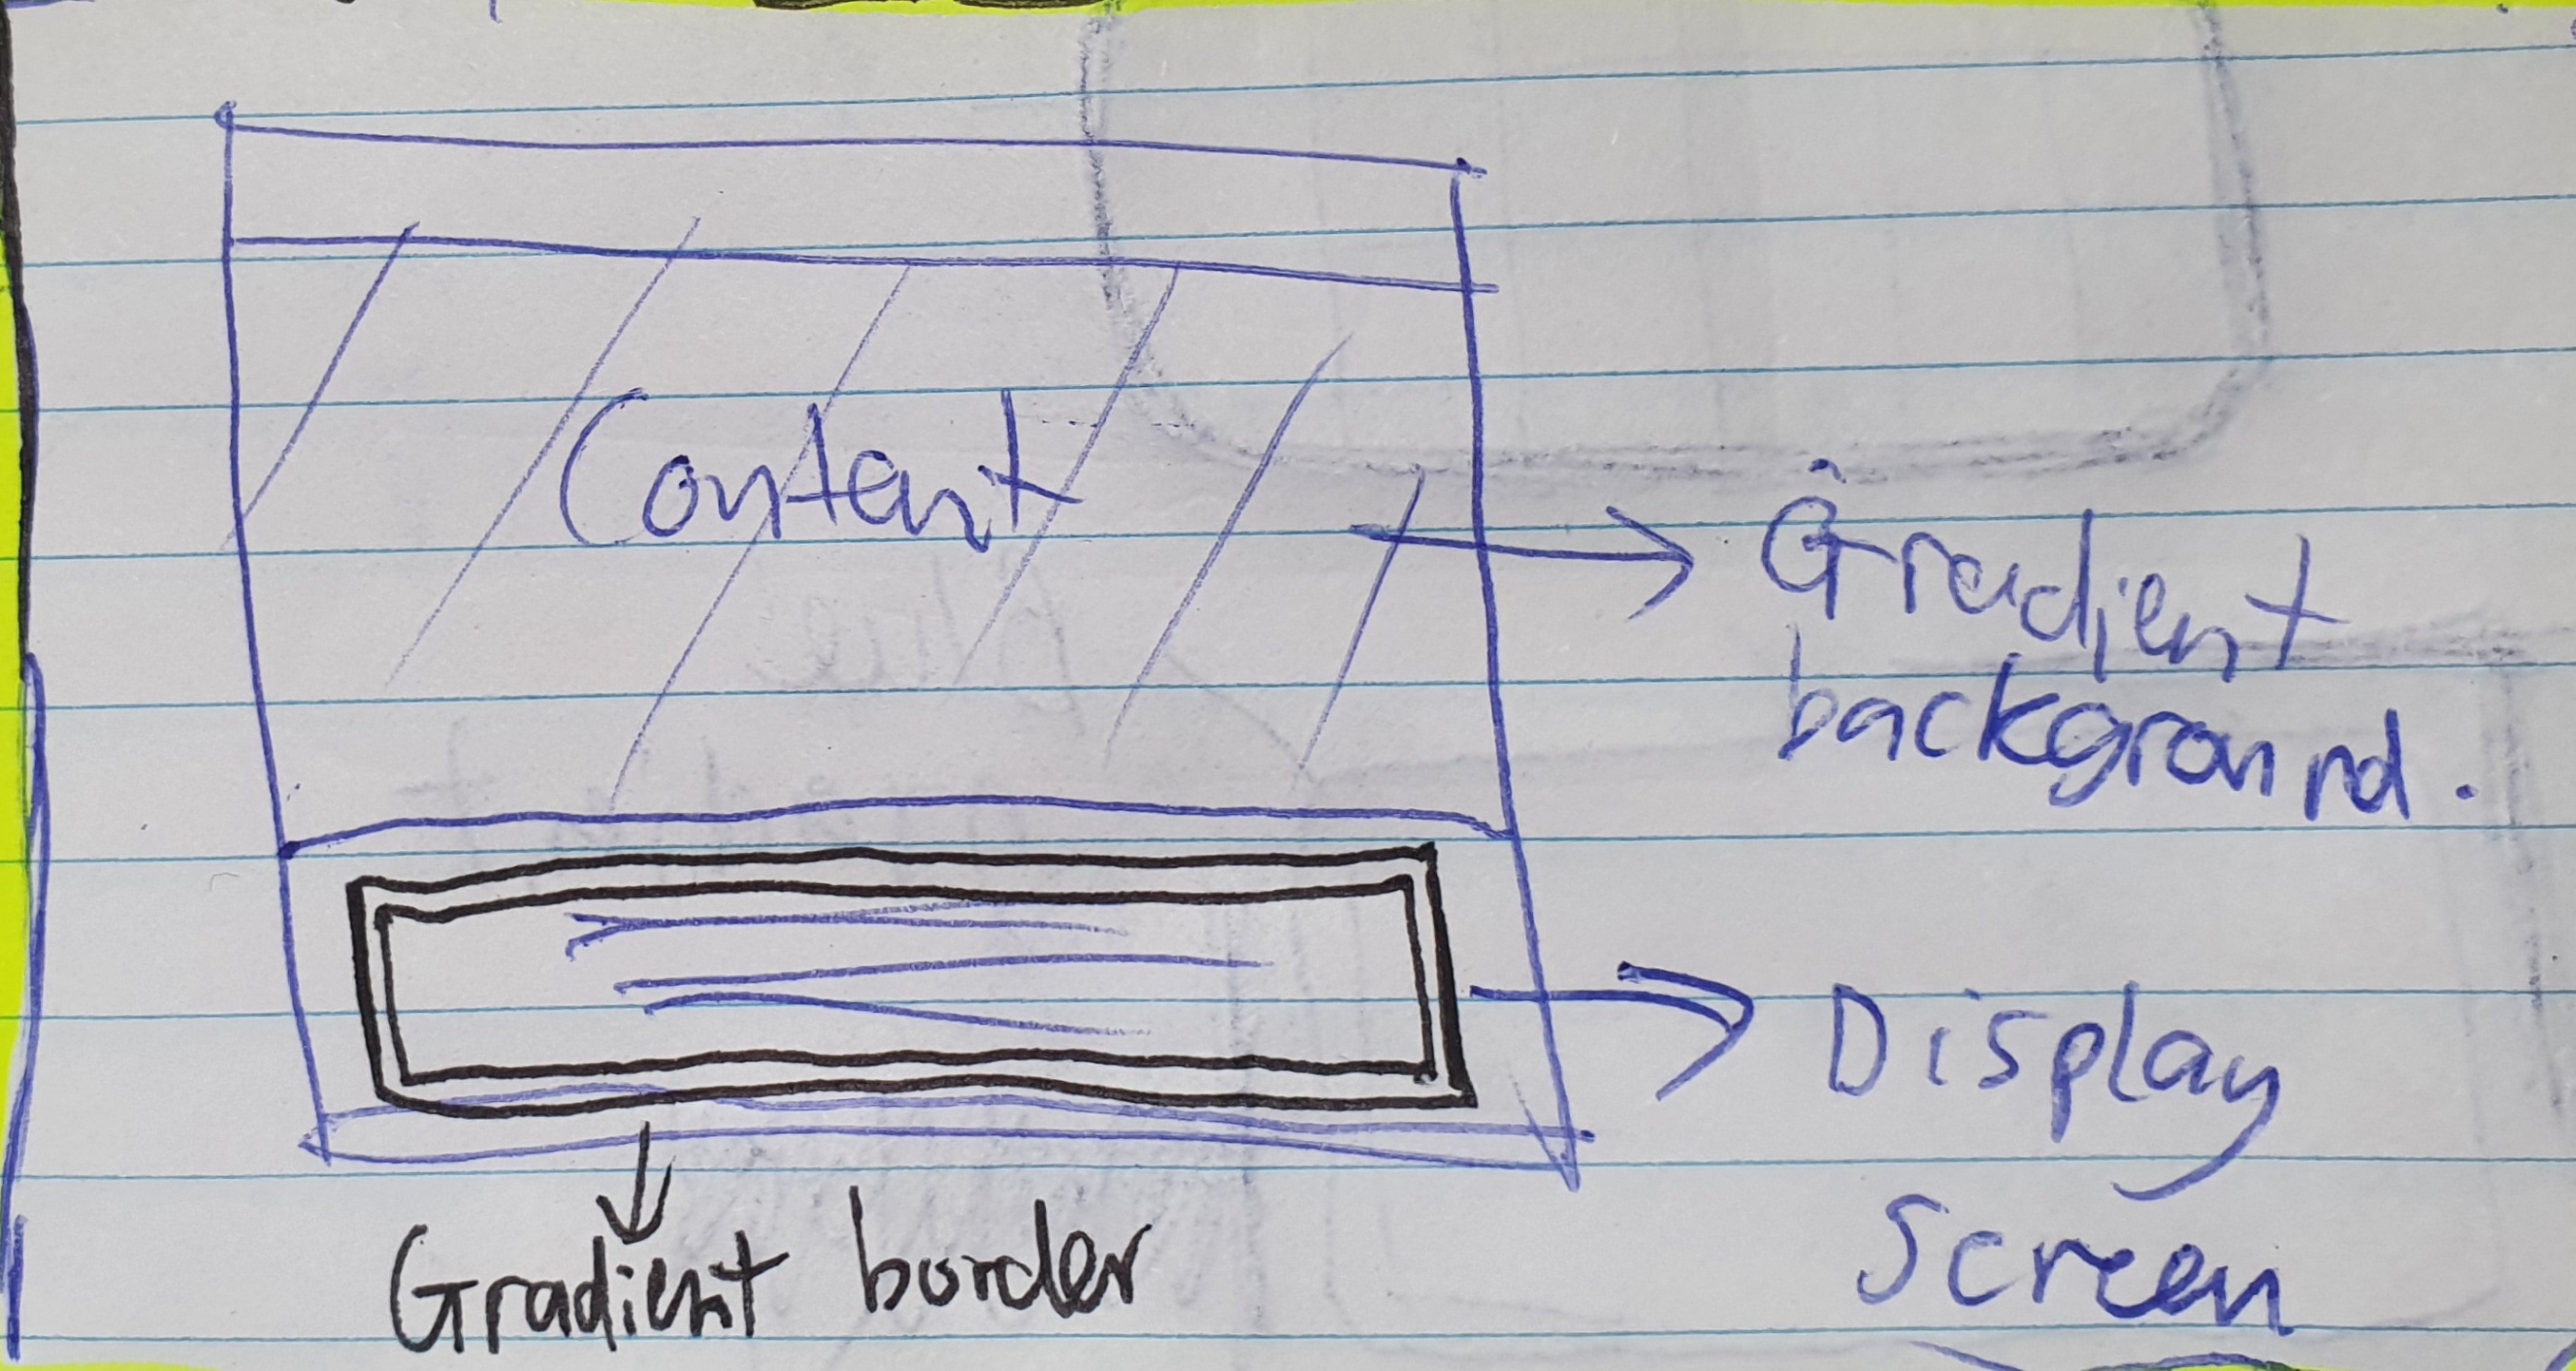 Content
Gradient
background.
Display
Screen
Gradient border